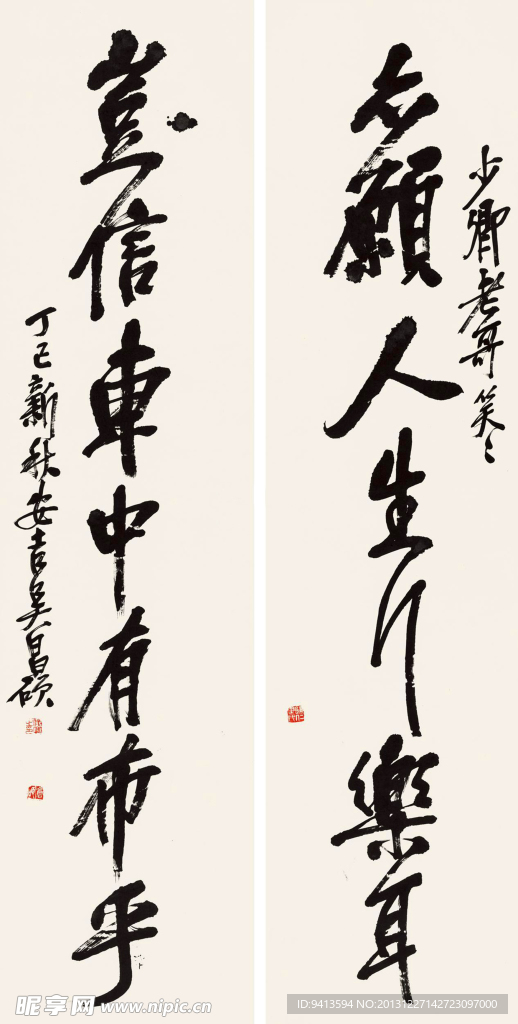 少卿老哥笑〻
亦願人生行樂耳
豈信車中有布乎
丁巳新秋安吉吳昌碩
昵享网 www.nipic.cn
ID:9413594 NO:20131227142723097000